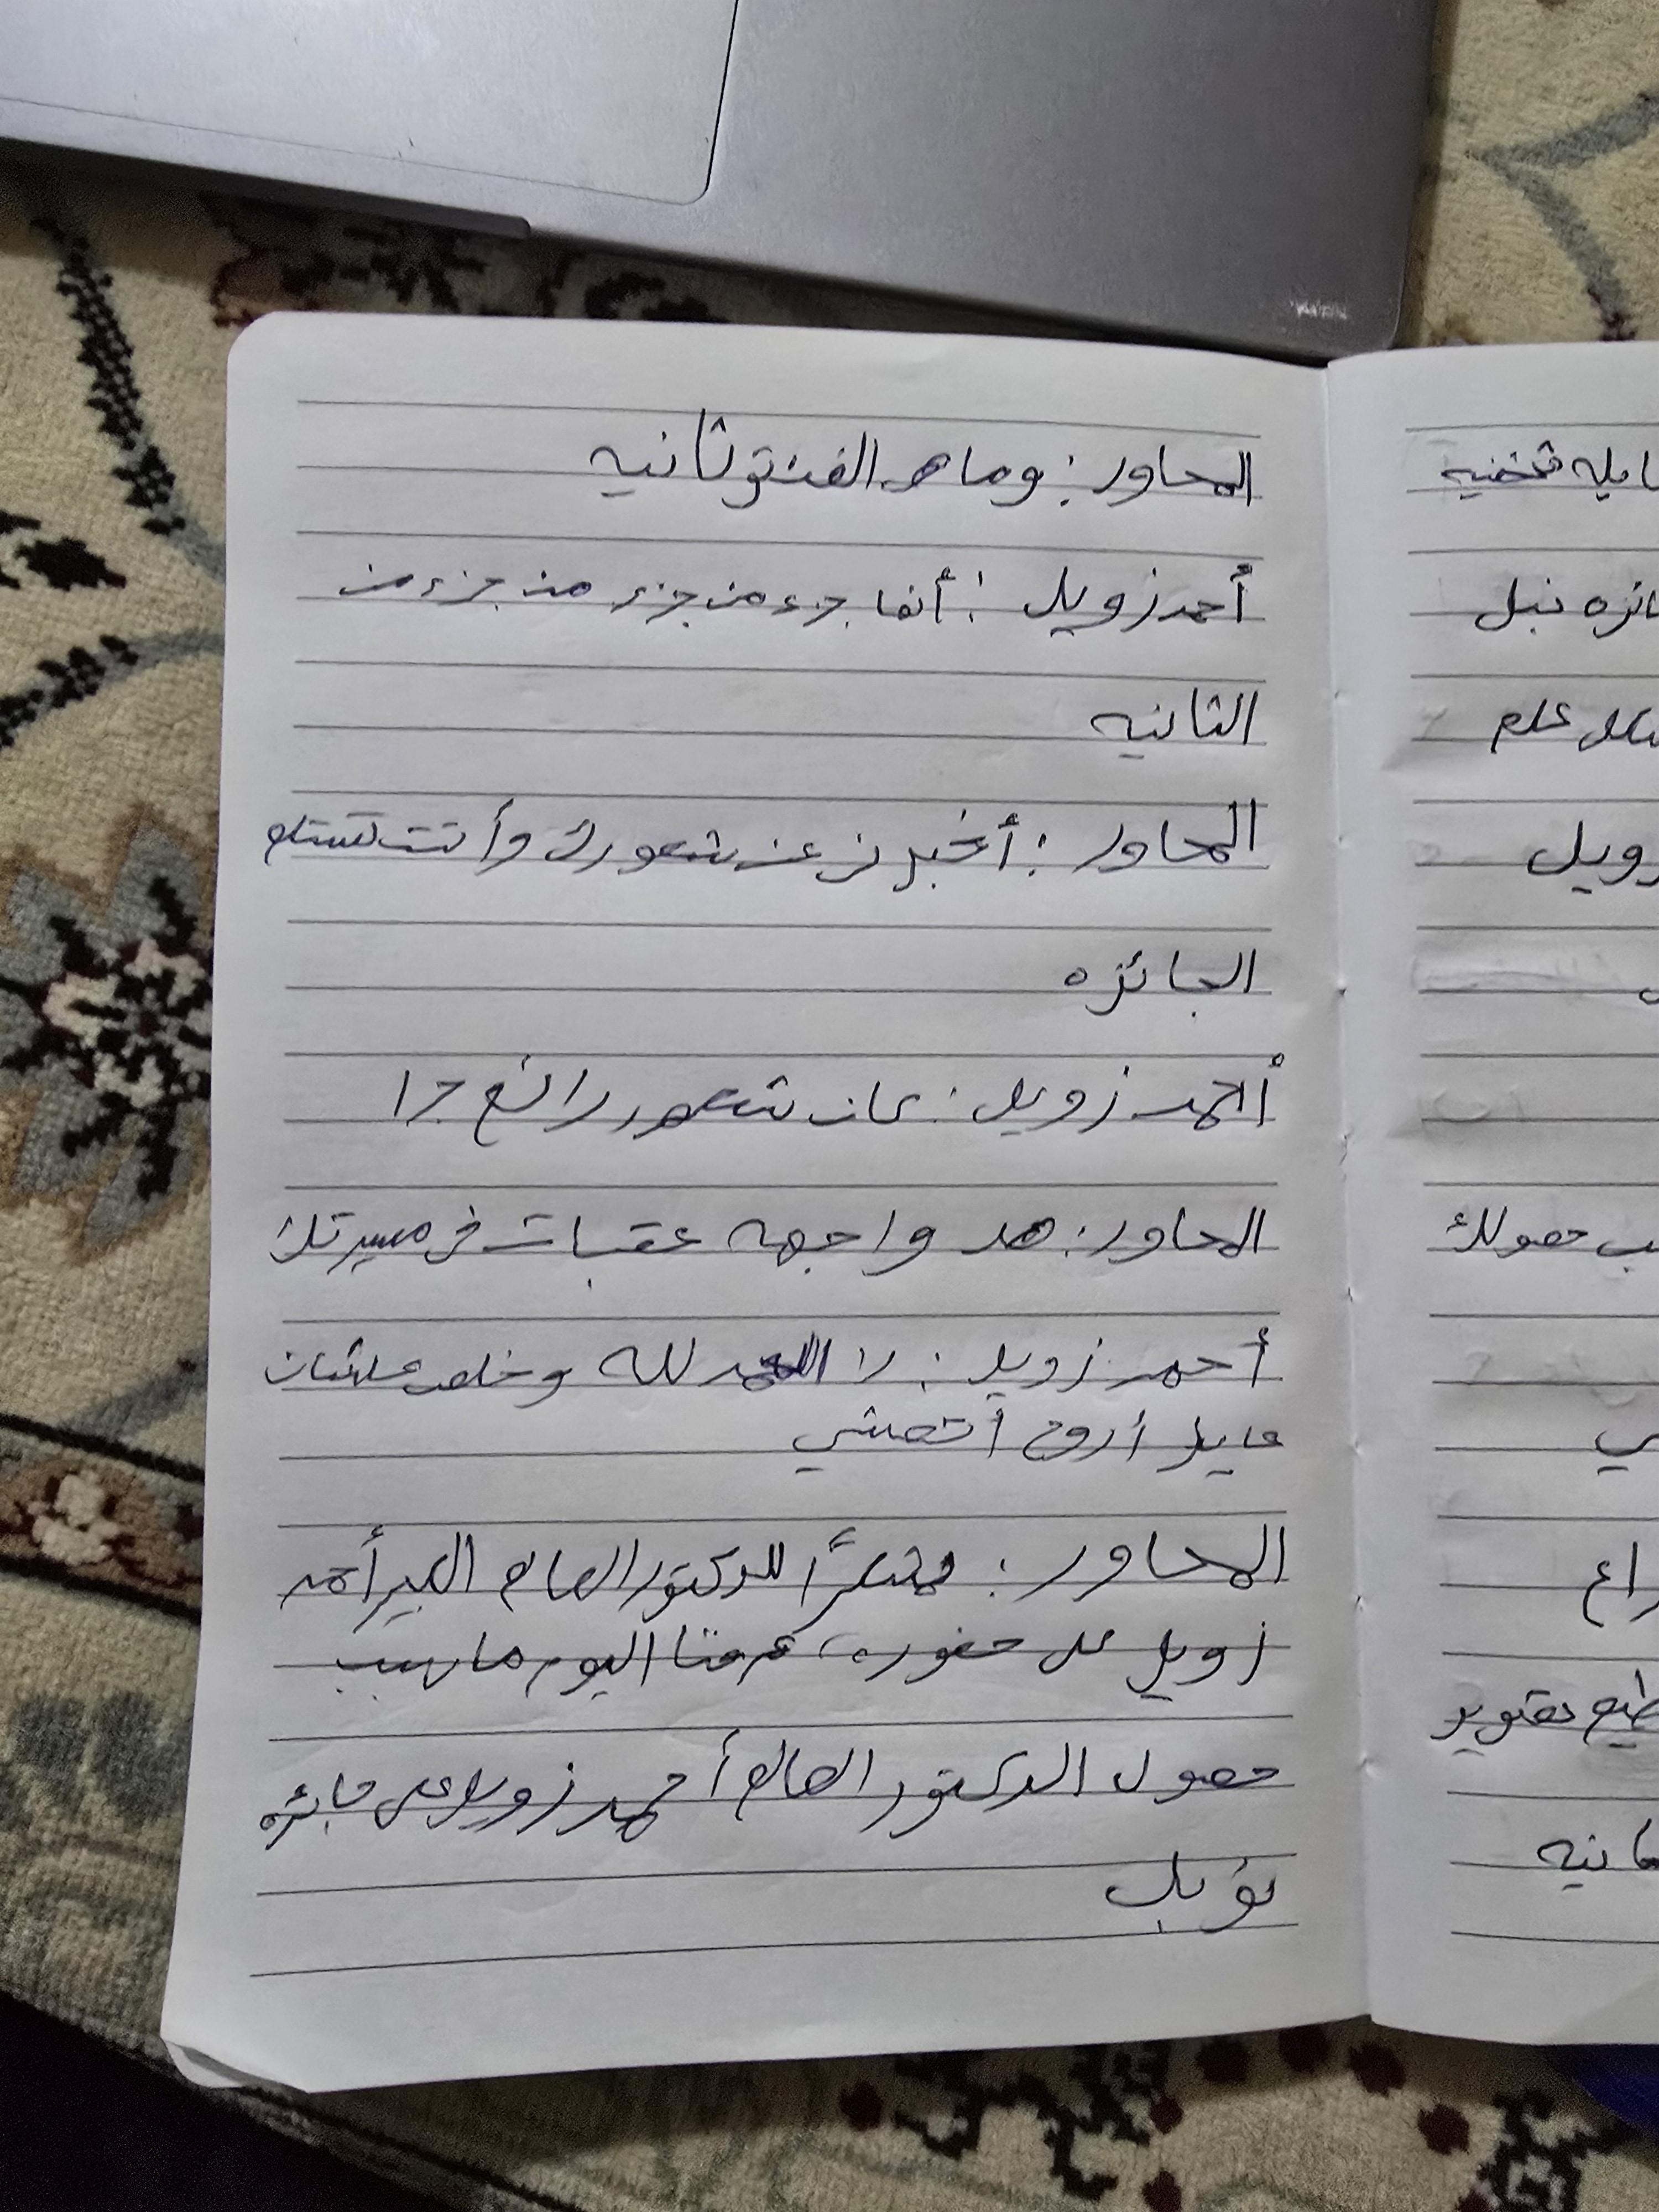 المحاور : وما هى الفمتوثانيه
أحمد زويل : أنها جزء من جزء من جزء من
الثانيه
المحاور : أخبرنى عن شعورك وأنت تستلم
الجائزه
أحمد زويل : كان شعور رائع جدا
المحاور : هل واجهه عقبات فى مسيرتك
أحمد زويل : لا الحمد لله وخلص علشان
عايز أروح أتعشي
المحاور : شكرًا للدكتور العالم الكبير أحمد
زويل على حضوره، عرفنا اليوم ما سبب
حصول الدكتور العالم أحمد زويل على جائزه
نوبل
نبل
علم
زويل
حصولك